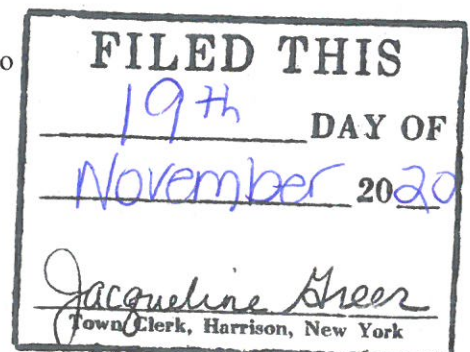 o
FILED THIS
19th DAY OF
November 2020
Jacqueline Greer
Town Clerk, Harrison, New York